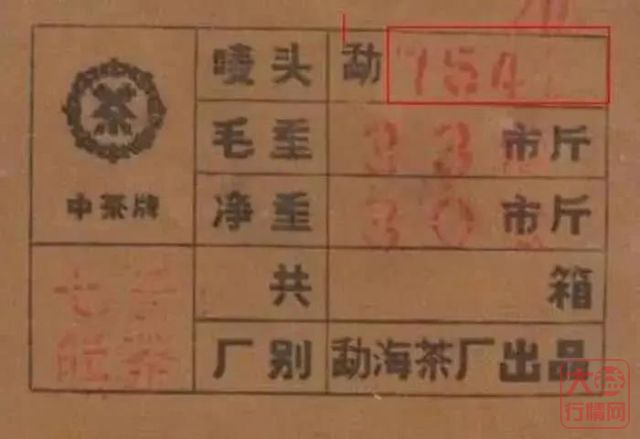 唛头 勐 754
毛重 33 市斤
中茶牌
净重 30 市斤
七子
饼茶
共 箱
厂别 勐海茶厂出品
大益
行情网